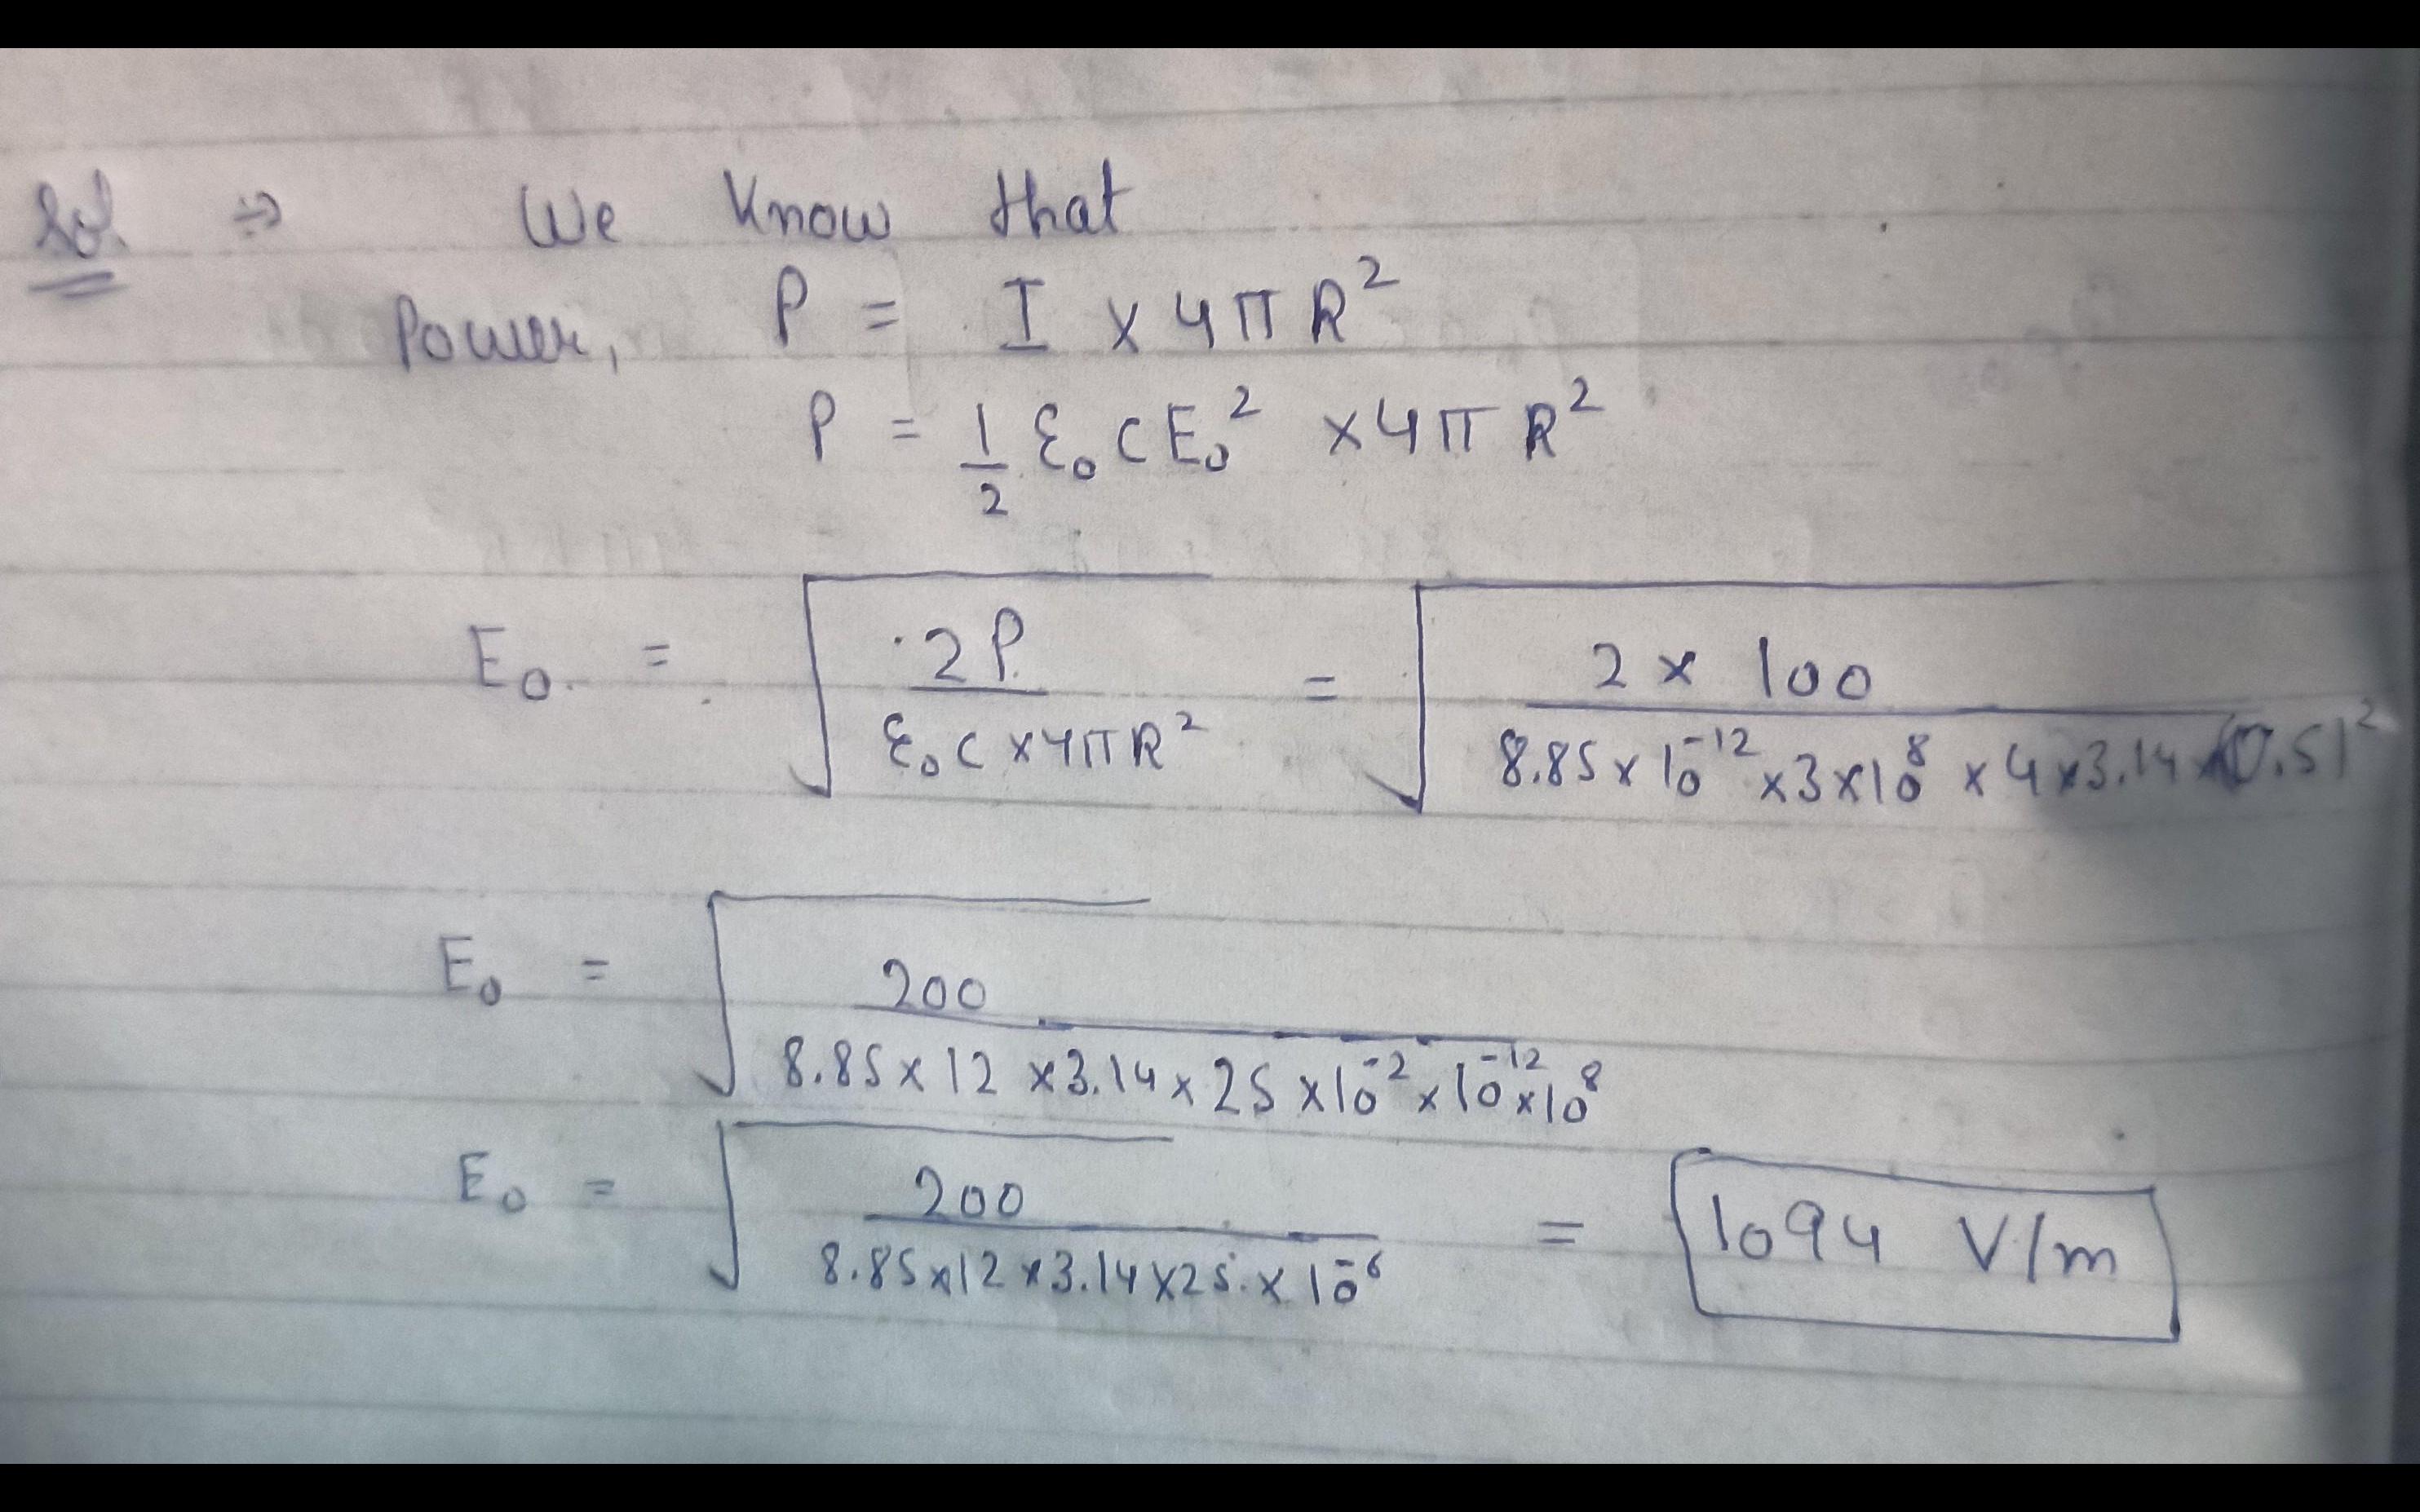 Sol. ⇒ We Know that
Power, P = I × 4πR²
P = 1/2 ε₀CE₀² × 4πR²
E₀ = √(2P / ε₀C × 4πR²) = √(2 × 100 / 8.85 × 10⁻¹² × 3 × 10⁸ × 4 × 3.14 × (0.5)²)
E₀ = √(200 / 8.85 × 12 × 3.14 × 25 × 10⁻² × 10⁻¹² × 10⁸)
E₀ = √(200 / 8.85 × 12 × 3.14 × 25 × 10⁻⁶) = 1094 V/m